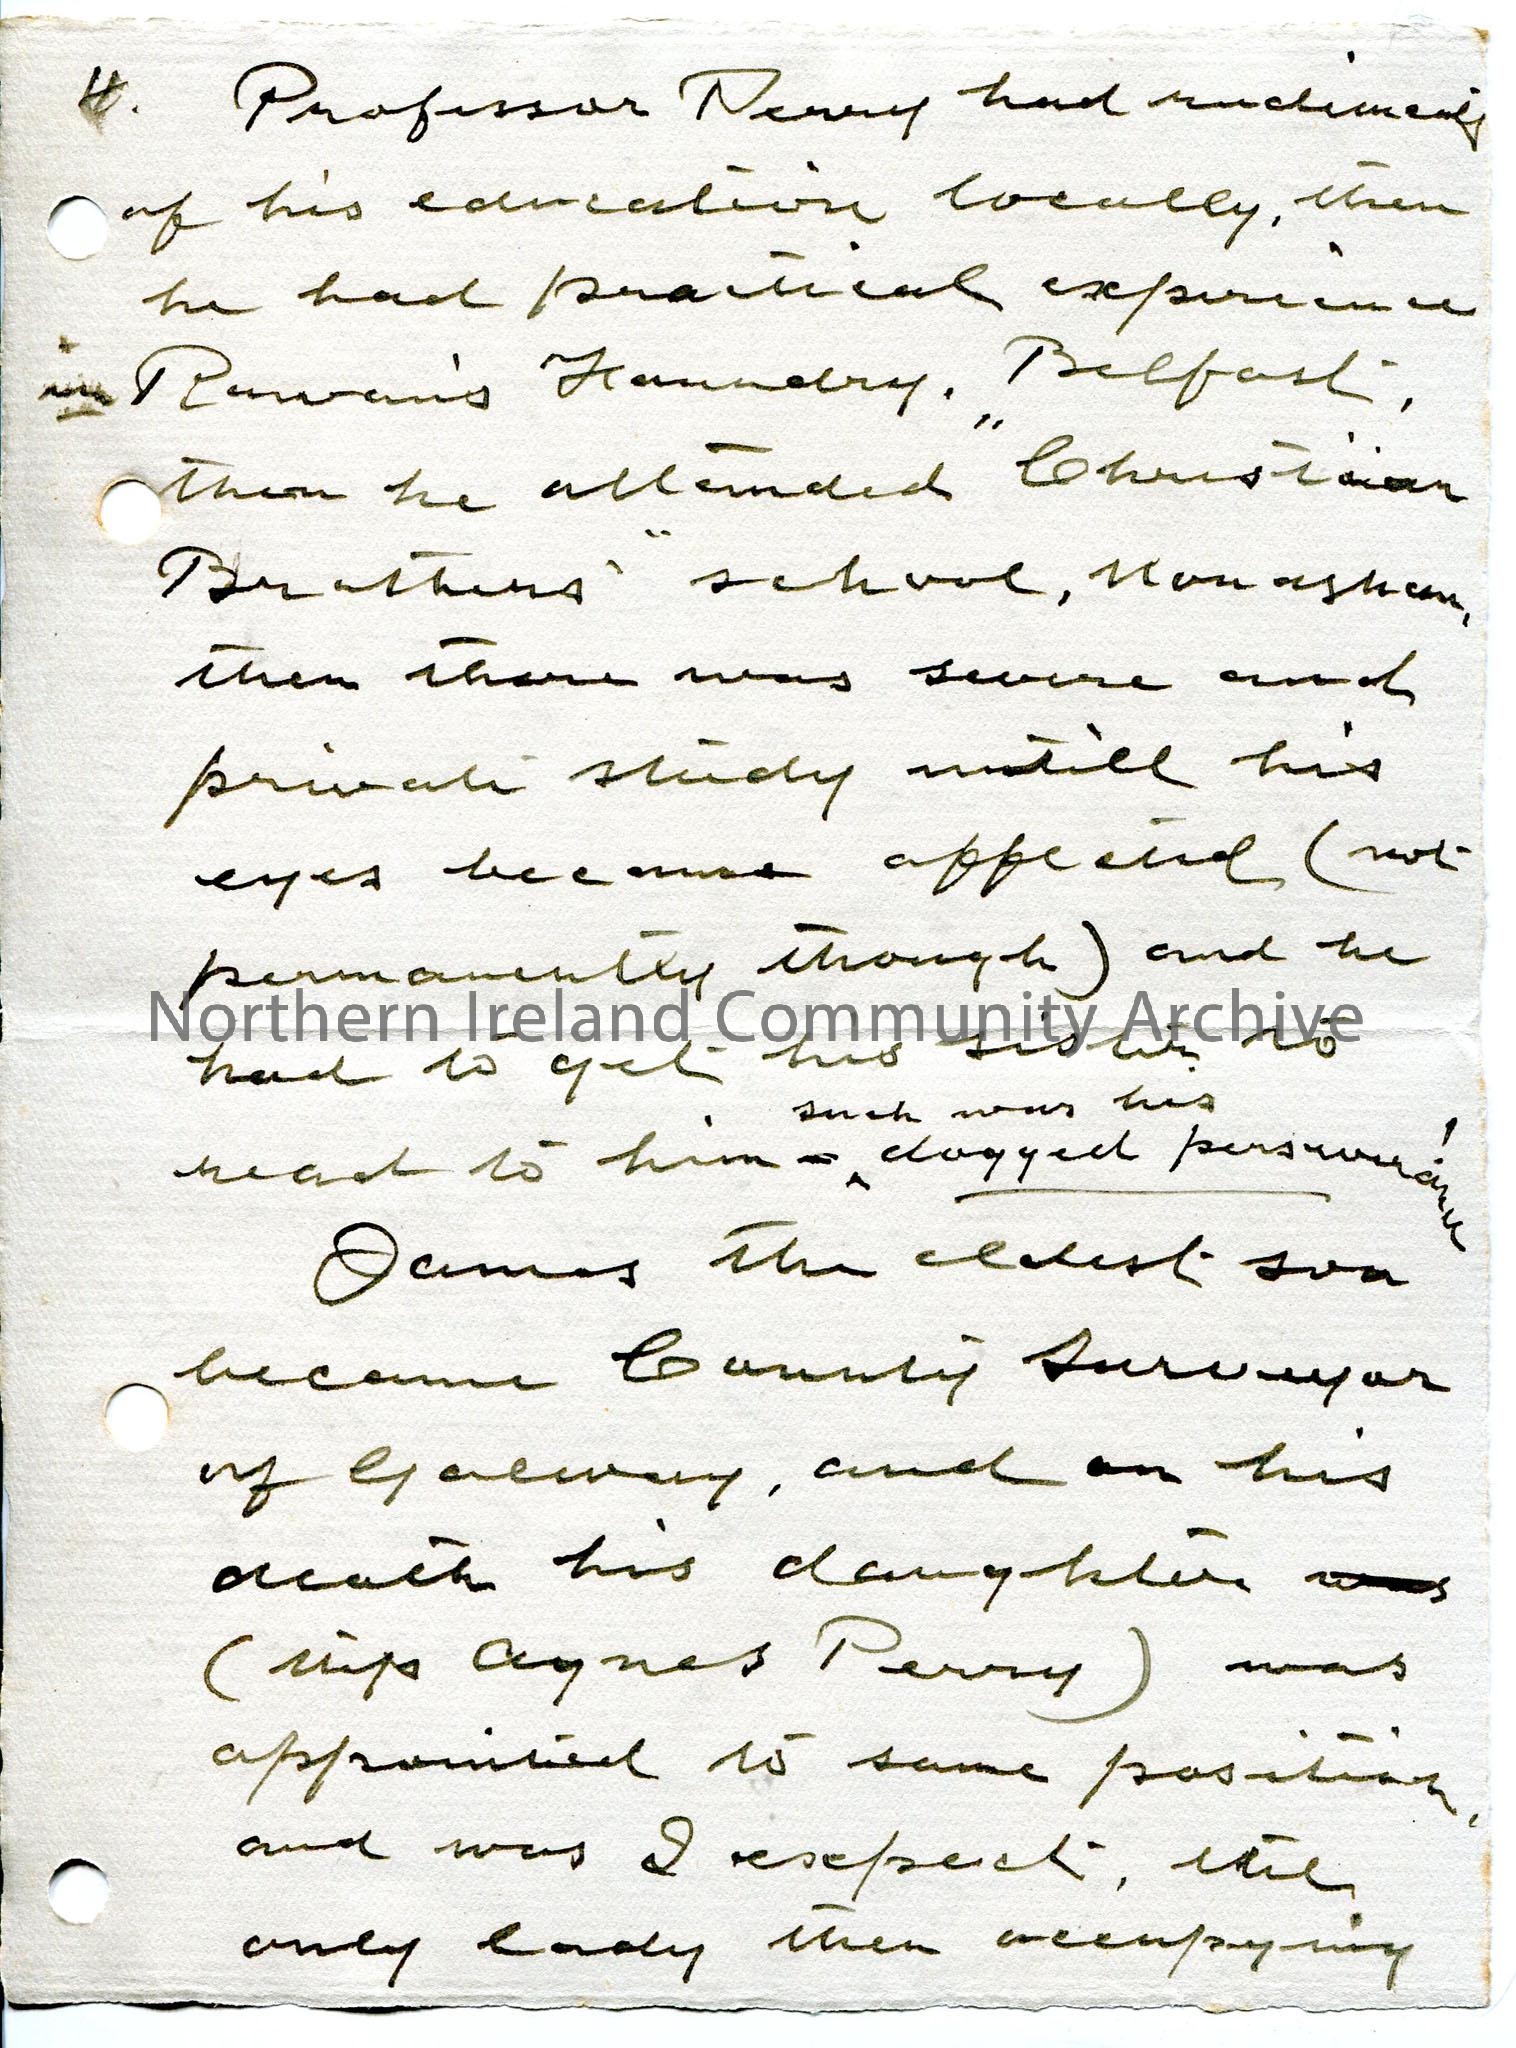 4. Professor Perry had rudiments
of his education locally, then
he had practical experience
in Rowan's Foundry, Belfast,
then he attended "Christian
Brothers'" school, Monaghan,
then there was severe and
private study untill his
eyes became affected (not
permanently though) and he
Northern Ireland Community Archive
had to get his sister to
such was his
read to him - dogged perseverance!
James the eldest son
became County Surveyor
of Galway, and on his
death his daughter was
(Miss Agnes Perry) was
appointed to same position,
and was I expect, the
only lady then occupying